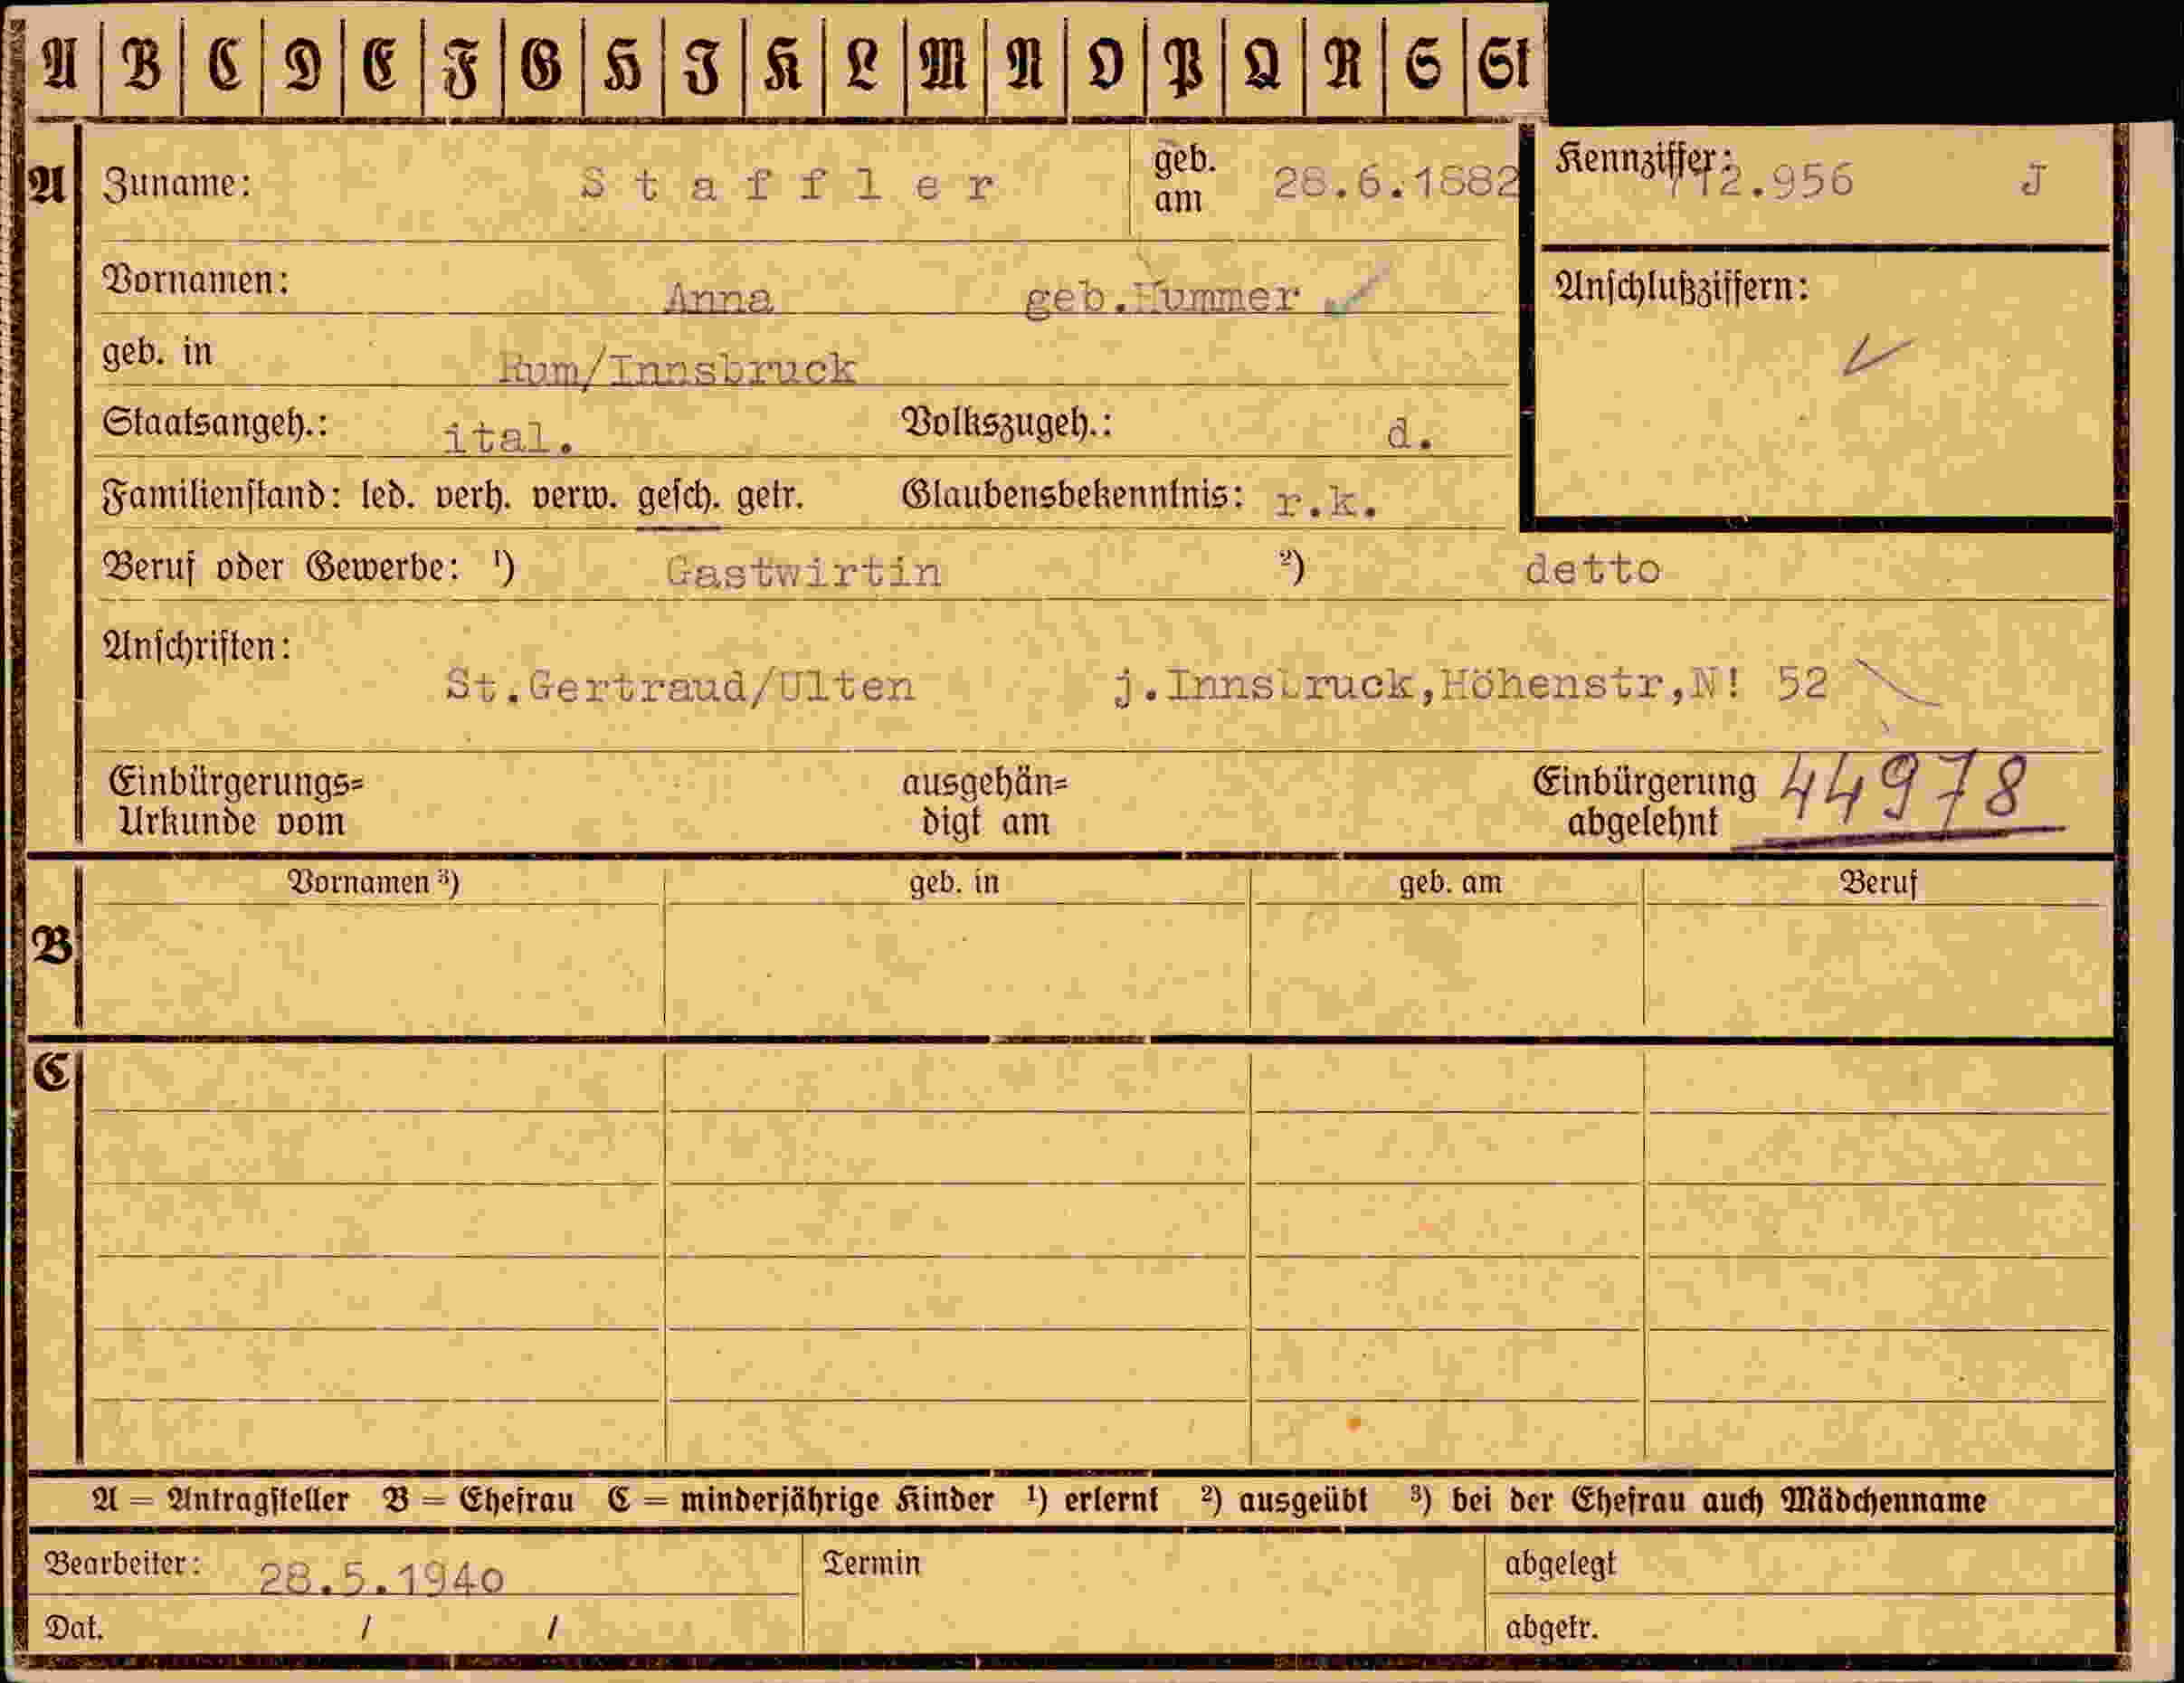 A B C D E F G H I K L M N O P Q R S St
A Zuname: Staffler geb. am 28.6.1882 Kennziffer: 712.956 J
Vornamen: Anna geb.Hummer Anschlußziffern:
geb. in Rum/Innsbruck
Staatsangeh.: ital. Volkszugeh.: d.
Familienstand: led. verh. verw. gesch. getr. Glaubensbekenntnis: r.k.
Beruf oder Gewerbe: ¹) Gastwirtin ²) detto
Anschriften:
St.Gertraud/Ulten j.Innsbruck,Höhenstr,N! 52
Einbürgerungs= ausgehän= Einbürgerung 44978
Urkunde vom digt am abgelehnt
Vornamen ³) geb. in geb. am Beruf
B
C
A = Antragsteller B = Ehefrau C = minderjährige Kinder ¹) erlernt ²) ausgeübt ³) bei der Ehefrau auch Mädchenname
Bearbeiter: 28.5.1940 Termin abgelegt
Dat. / / abgetr.